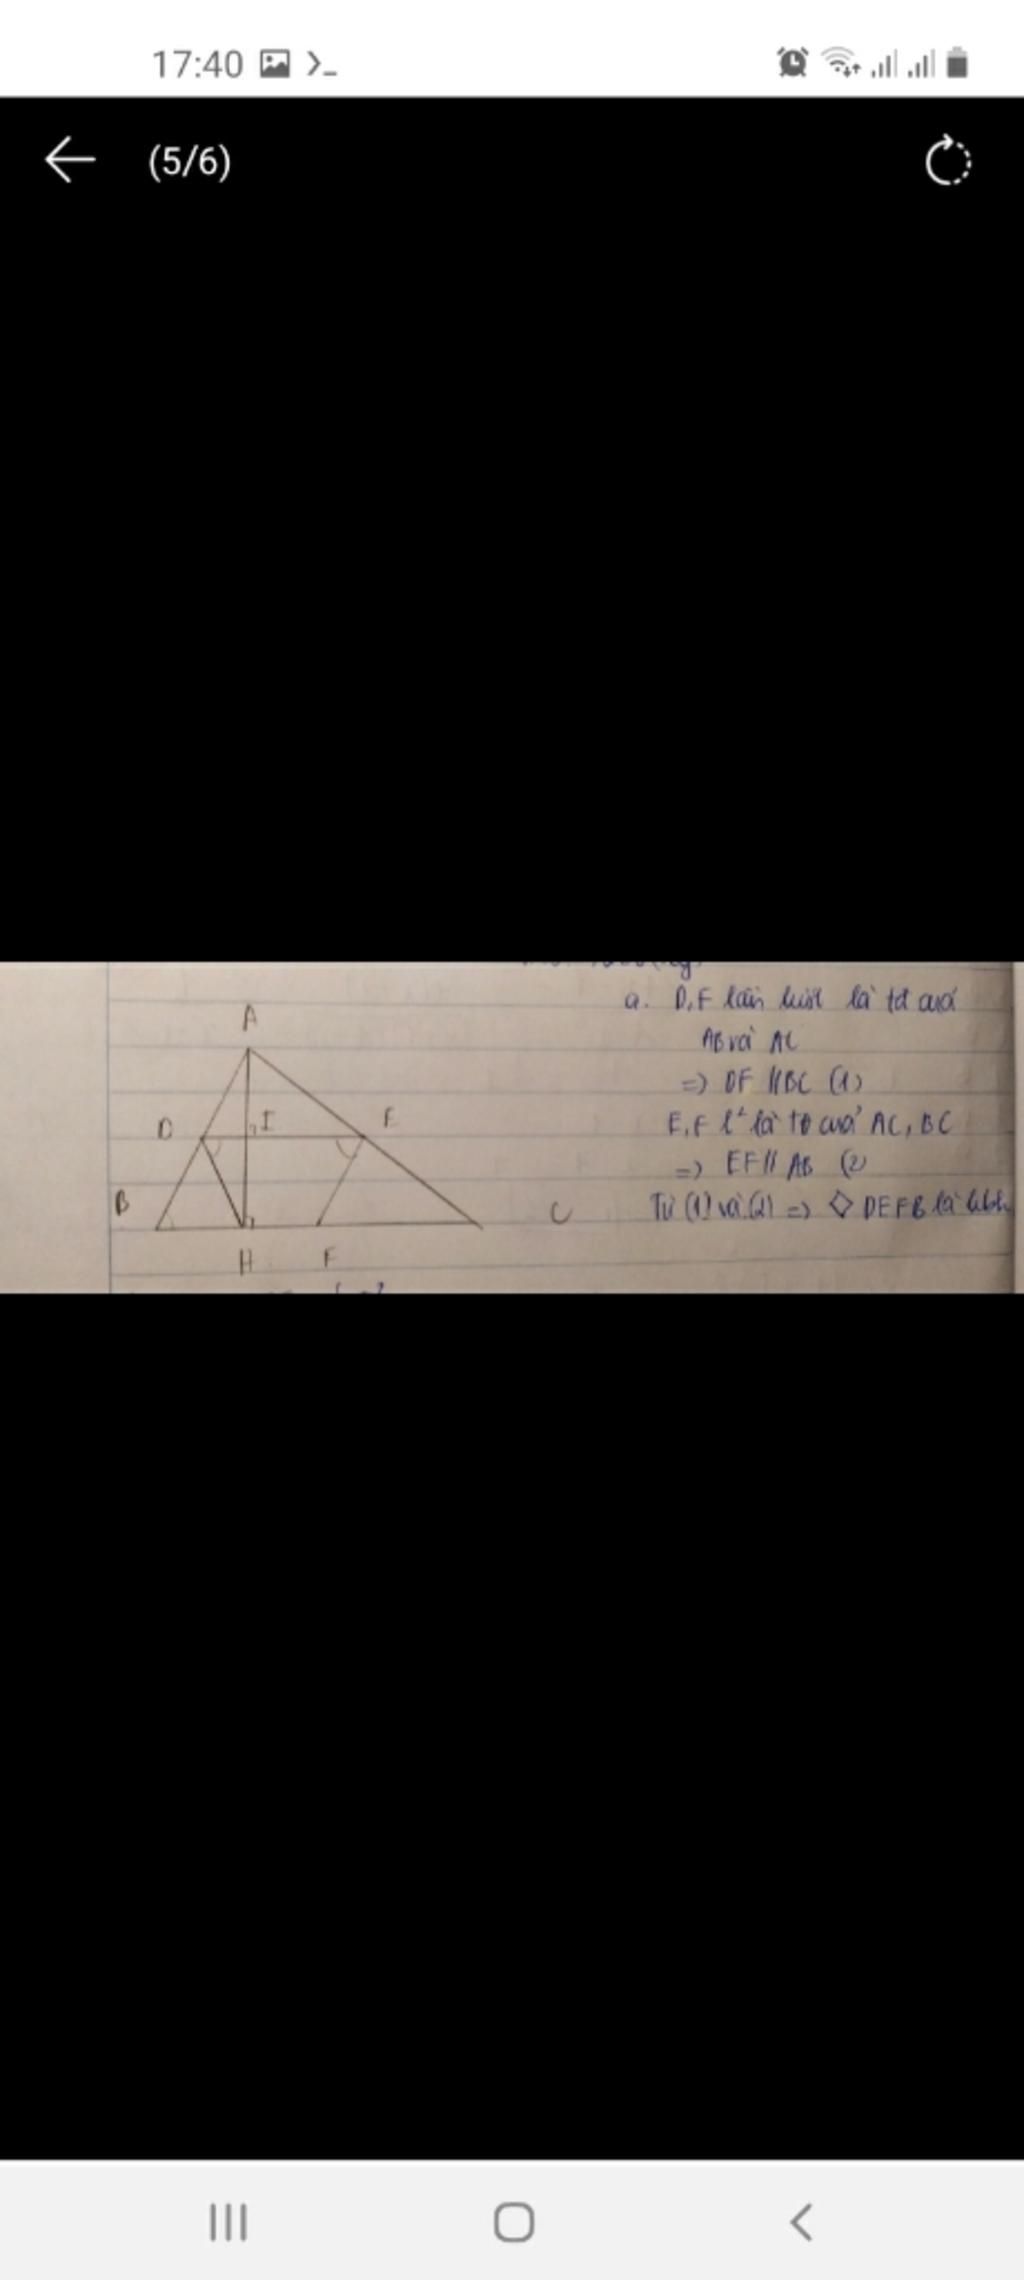 17:40
(5/6)
a. D,F lần lượt là tđ của
AB và AC
=> DF // BC (1)
E,F l² là tđ của AC, BC
=> EF // AB (2)
Từ (1) và (2) => ◇ DEFB là hbh
A
D I E
B C
H F